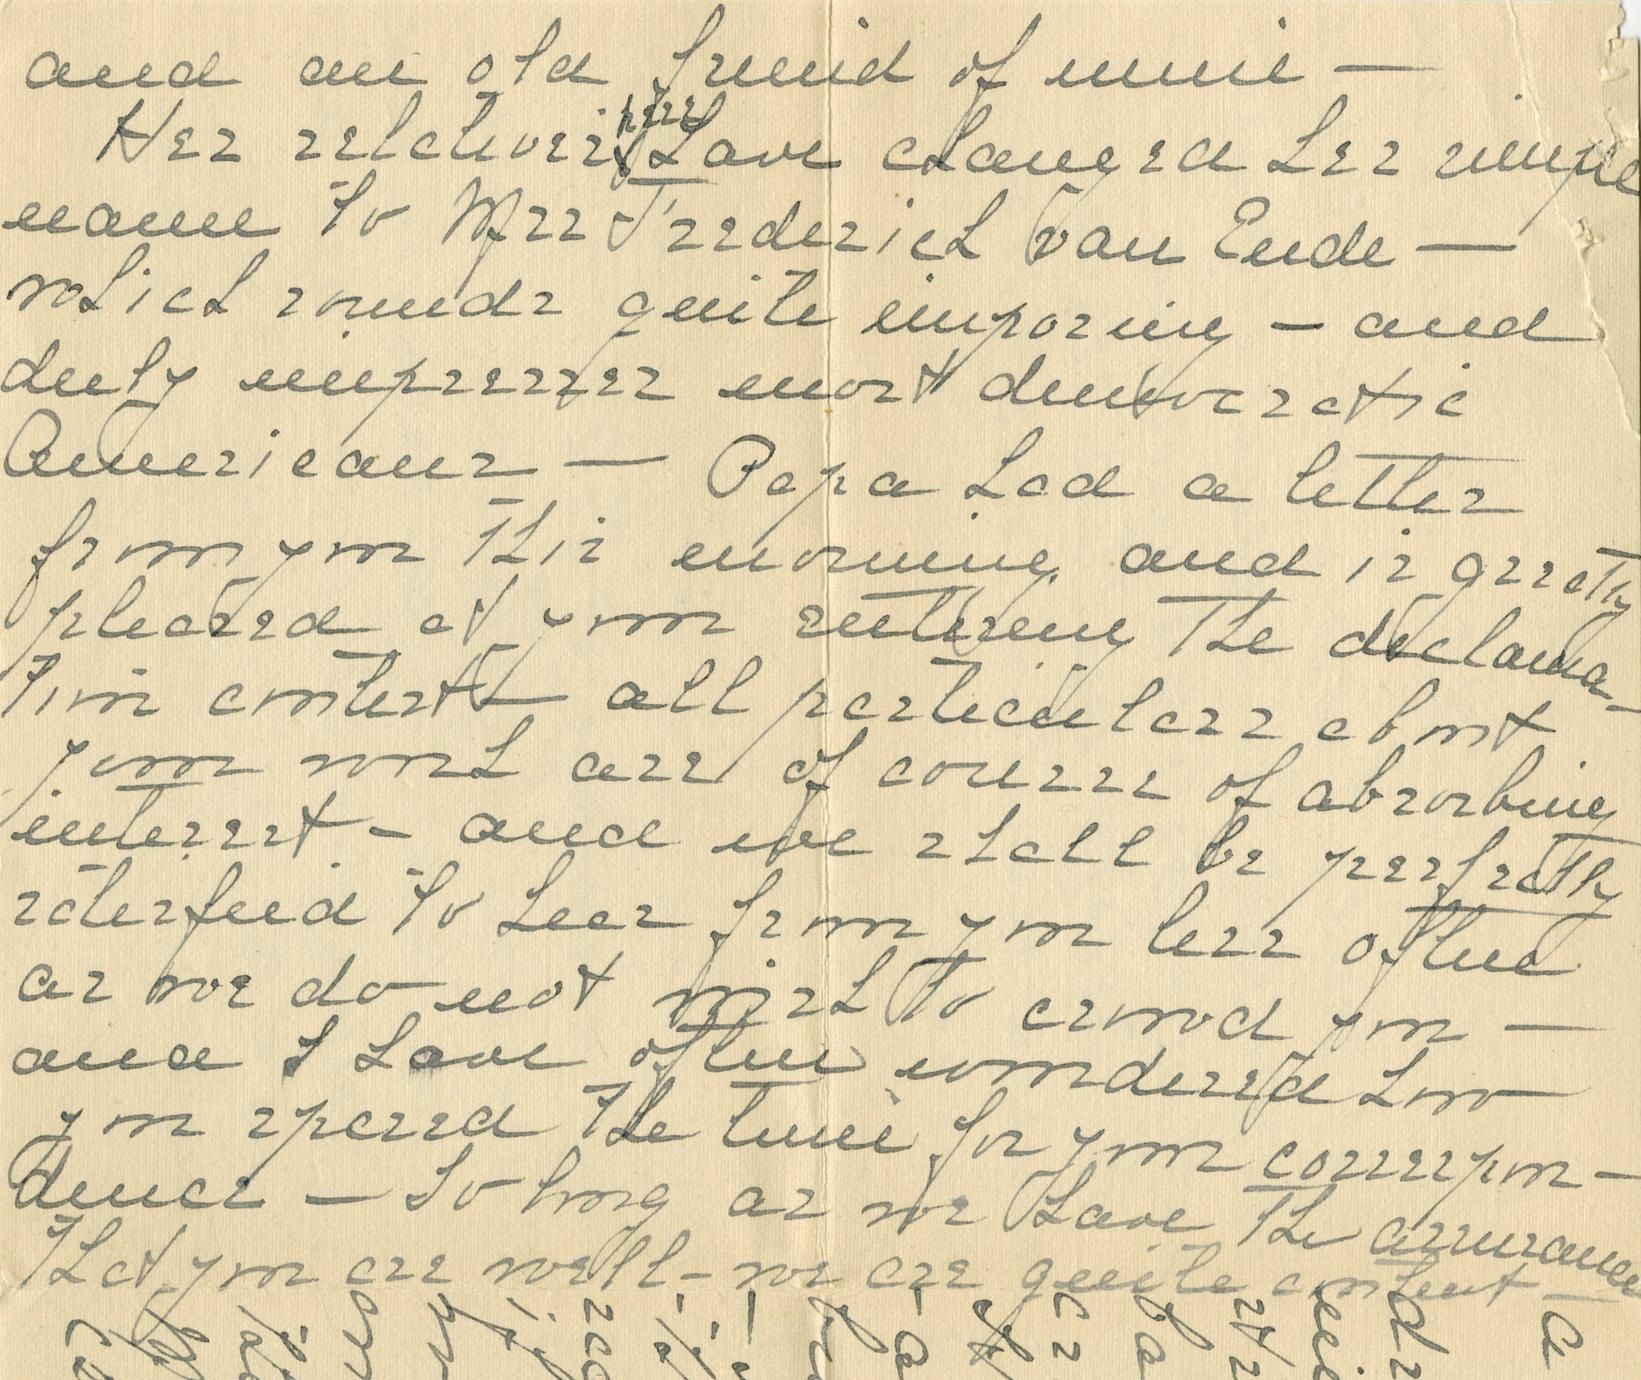 and an old friend of mine —
Her relatives here have changed her simple
name to Mrs Frederick van Eude —
which sounds quite imposing — and
duly impresses most democratic
Americans — Papa had a letter
from you this morning and is greatly
pleased at your entering the declama-
tion contest all particulars about
your work are of course of absorbing
interest — and we shall be perfectly
satisfied to hear from you less often
as we do not wish to crowd you —
and I have often wondered how
you spared the time for your correspon-
dence — So long as we have the assurance
that you are well — we are quite content —